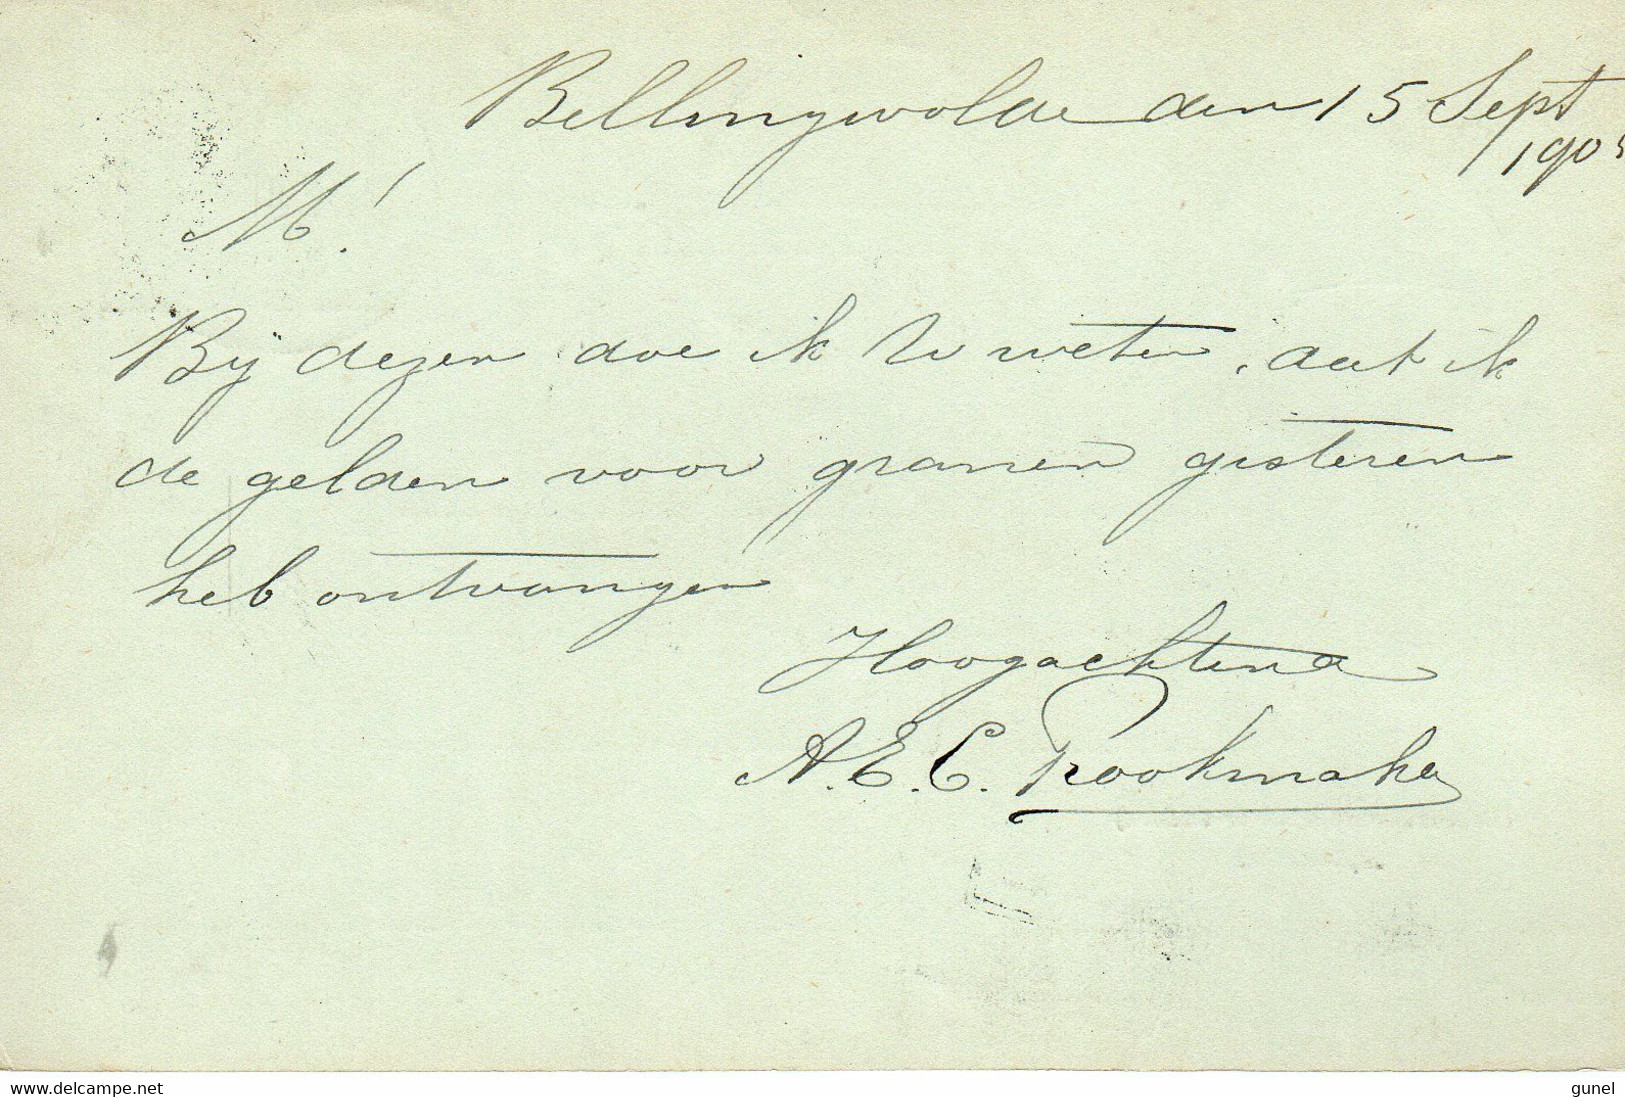 Bellingwolde den 15 Sept
1905
M!
Bij dezen doe ik U weten, dat ik
de gelden voor granen gisteren
heb ontvangen
Hoogachtend
A. E. E. Rookmaker
www.delcampe.net
gunel